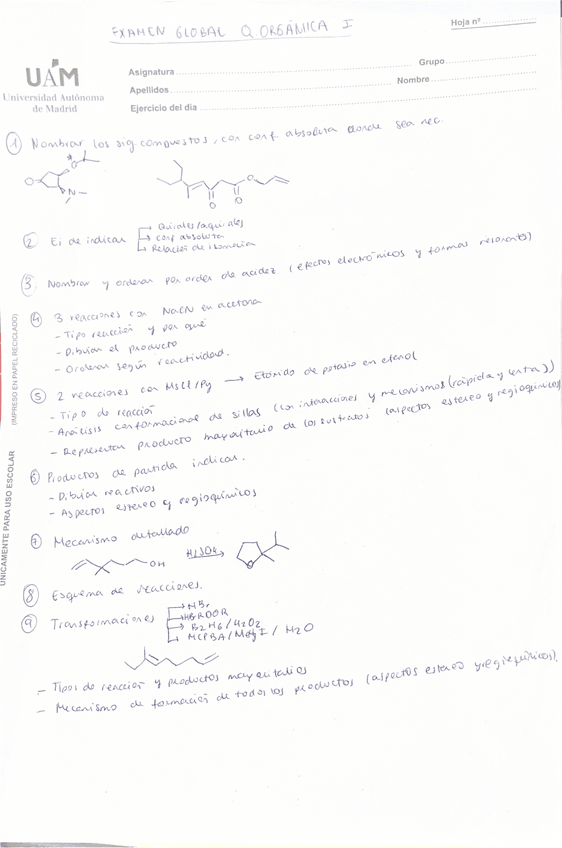 EXAMEN GLOBAL Q. ORGÁNICA I
Hoja nº
UAM
Universidad Autónoma
de Madrid
Asignatura
Grupo
Apellidos
Nombre
Ejercicio del día
① Nombrar los sig. compuestos, con conf. absoluta donde sea nec.
*
O
O
N
O
O
O
② Ej de indicar
Quirales/aquirales
conf absoluta
Relación de isomería
③ Nombrar y ordenar por orden de acidez (efectos electrónicos y formas resonantes)
④ 3 reacciones con NaCN en acetona
- Tipo reacción y por qué
- Dibujar el producto
- Ordenar según reactividad.
⑤ 2 reacciones con MsCl/Py → Etóxido de potasio en etanol
- Tipo de reacción
- Análisis conformacional de sillas (con interacciones y mecanismos (rápida y lenta))
- Representar producto mayoritario de los sustratos (aspectos estereo y regioquímicos)
⑥ Productos de partida indicar.
- Dibujar reactivos
- Aspectos estereo y regioquímicos
⑦ Mecanismo detallado
OH
H2SO4
O
⑧ Esquema de reacciones.
⑨ Transformaciones
HBr
HBr ROOR
B2H6/H2O2
MCPBA/MeMgI/H2O
- Tipos de reacción y productos mayoritarios
- Mecanismo de formación de todos los productos (aspectos estereo y regioquímicos).
UNICAMENTE PARA USO ESCOLAR
(IMPRESO EN PAPEL RECICLADO)